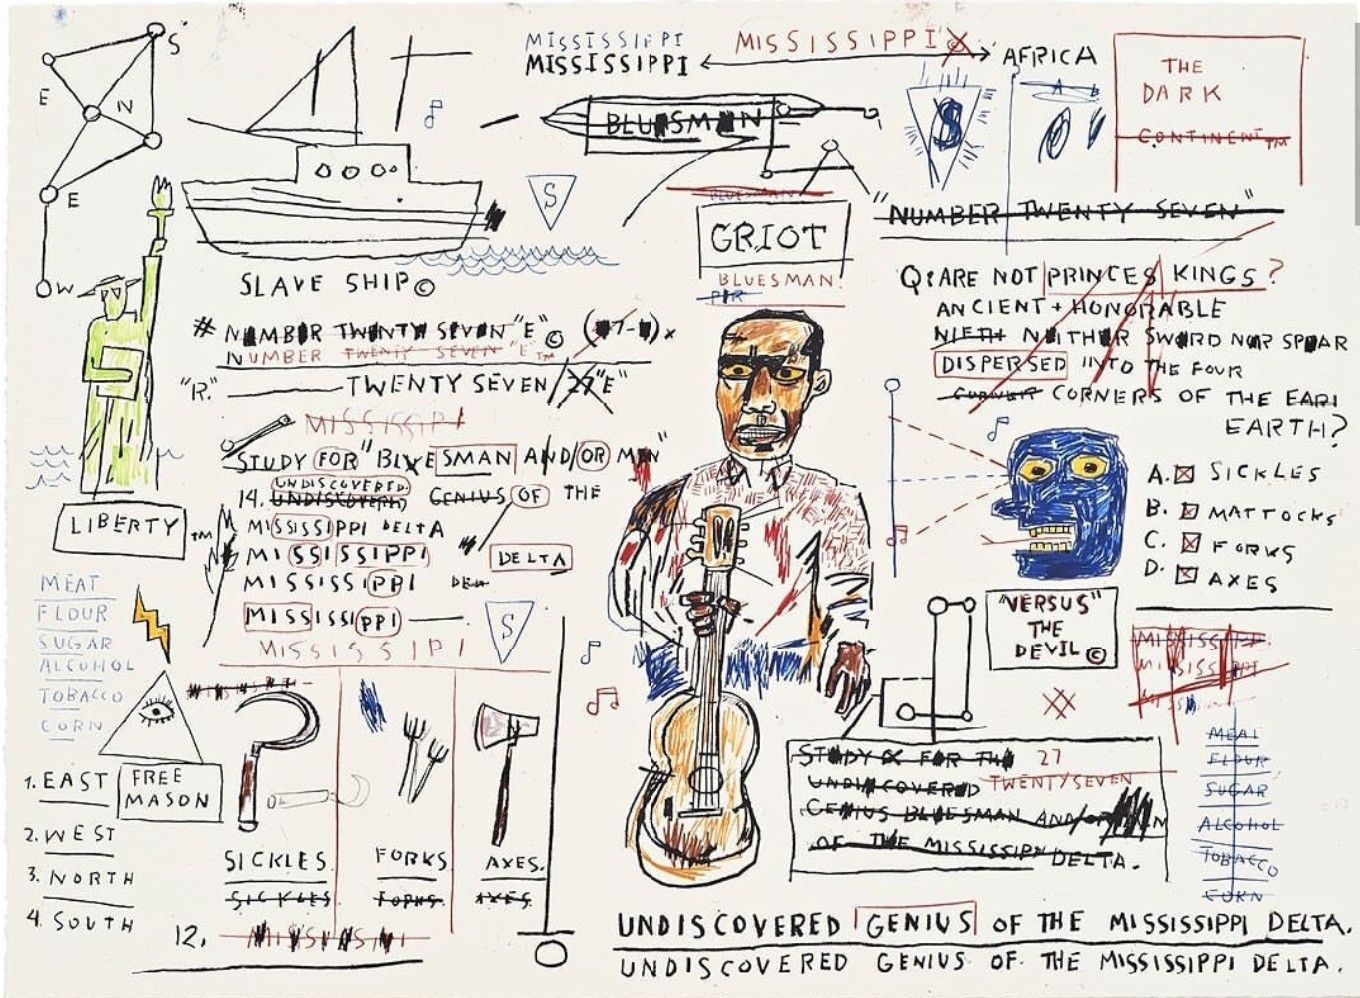 S
E
N
E
W
MISSISSIPPI
MISSISSIPPI
MISSISSIPPI
AFRICA
THE
DARK
CONTINENT™
BLUESMAN
S
S
A B
BLUESMAN
GRIOT
BLUESMAN.
"NUMBER TWENTY SEVEN"
SLAVE SHIP©
# NUMBER TWENTY SEVEN "E" ©
NUMBER TWENTY SEVEN "E"™
"R." TWENTY SEVEN / 27 "E"
Q: ARE NOT PRINCES KINGS?
ANCIENT + HONORABLE
NEITHER SWORD NOR SPEAR
DISPERSED INTO THE FOUR
CORNER CORNERS OF THE EARI
EARTH?
A. SICKLES
B. MATTOCKS
C. FORKS
D. AXES
MISSISSIPPI
STUDY FOR "BLUESMAN AND/OR MEN"
UNDISCOVERED
14. UNDISCOVERED GENIUS OF THE
MISSISSIPPI DELTA
MISSISSIPPI
DELTA
MISSISSIPPI
MISSISSIPPI
MISSISSIPI
S
LIBERTY™
MEAT
FLOUR
SUGAR
ALCOHOL
TOBACCO
CORN
"VERSUS"
THE
DEVIL©
MISSISSIPPI
MEAL
FLOUR
SUGAR
ALCOHOL
TOBACCO
CORN
STUDY FOR THE 27
UNDISCOVERED TWENTYSEVEN
GENIUS BLUESMAN AND/OR
OF THE MISSISSIPPI DELTA.
FREE
MASON
1. EAST
2. WEST
3. NORTH
4. SOUTH
SICKLES
SICKLES
FORKS
FORKS
AXES.
AXES.
12.
UNDISCOVERED GENIUS OF THE MISSISSIPPI DELTA.
UNDISCOVERED GENIUS OF THE MISSISSIPPI DELTA.